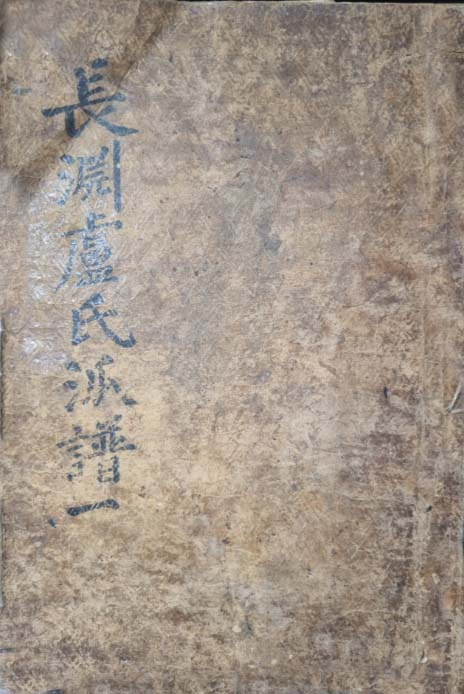 長淵盧氏派譜一